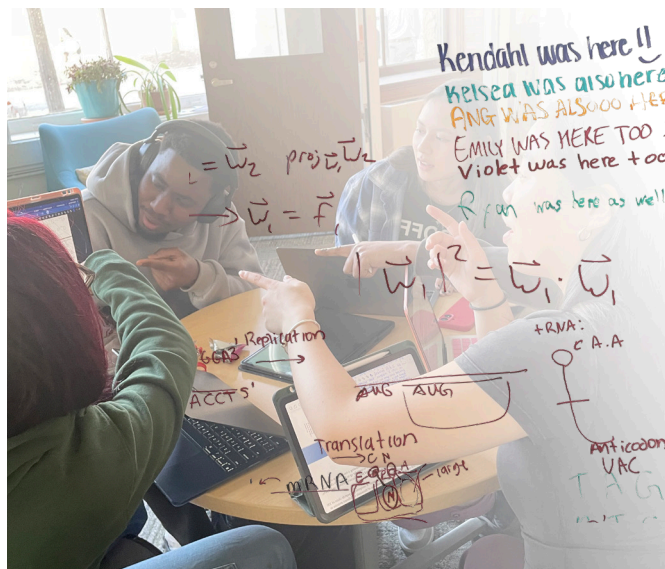 Kendahl was here!!
Kelsea was also here
ANG WAS ALSOOO HERE
EMILY WAS HERE TOO
Violet was here too
Ryan was here as well
= w⃗₂ proj w⃗₁ w⃗₂
→ w⃗₁ = f⃗₁
|w⃗₁|² = w⃗₁ · w⃗₁
tRNA:
A.A
GGA3' Replication
ACCT5'
AUG AUG
Anticodon
UAC
Translation
mRNA E P A large
TAG